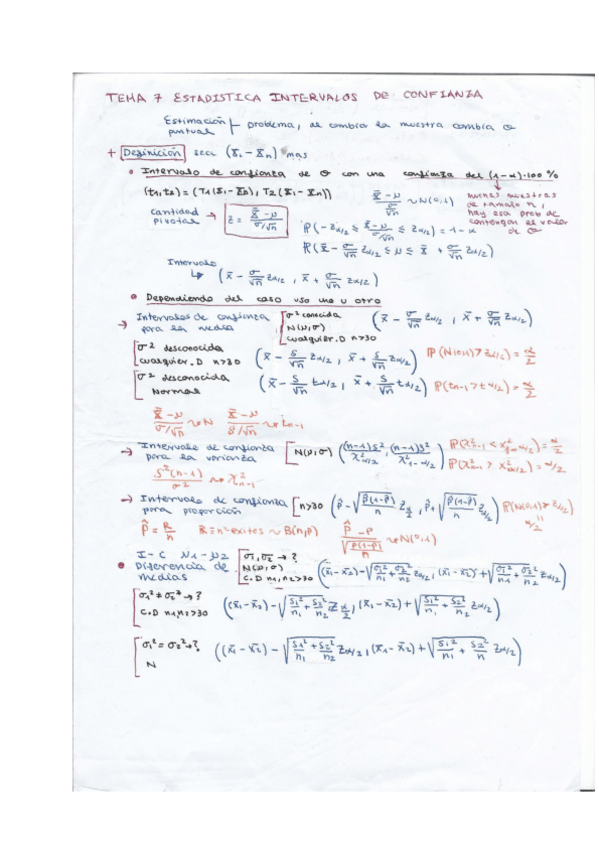 TEMA 7 ESTADISTICA INTERVALOS DE CONFIANZA
Estimación puntual problema, de cambia la muestra cambia θ
+ Definición sea (X1 - Xn) mas
Intervalo de confianza de θ con una confianza del (1-α)·100 %
(t1,t2) = (T1(X1-Xn), T2(X1-Xn))
X̄-μ / σ/√n ~ N(0,1)
muchas muestras de tamaño n, hay esa prob de contengan el valor de θ
cantidad pivotal → Z = X̄-μ / σ/√n
P(-Zα/2 ≤ X̄-μ / σ/√n ≤ Zα/2) = 1-α
P(X̄ - σ/√n Zα/2 ≤ μ ≤ X̄ + σ/√n Zα/2)
Intervalo
↳ (x̄ - σ/√n Zα/2, x̄ + σ/√n Zα/2)
Dependiendo del caso uso uno u otro
→ Intervalos de confianza para la media [σ² conocida N(μ,σ) cualquier.D n>30 (x̄ - σ/√n Zα/2, x̄ + σ/√n Zα/2)
[σ² desconocida cualquier.D n>30 (x̄ - S/√n Zα/2, x̄ + S/√n Zα/2) P(N(0,1) > Zα/2) = α/2
[σ² desconocida Normales (x̄ - S/√n tα/2, x̄ + S/√n tα/2) P(tn-1 > tα/2) = α/2
X̄-μ / σ/√n ~ N X̄-μ / S/√n ~ tn-1
→ Intervalo de confianza para la varianza [N(μ,σ) ((n-1)S² / χ²α/2, (n-1)S² / χ²1-α/2) P(χ²n-1 < χ²1-α/2) = α/2
P(χ²n-1 > χ²α/2) = α/2
S²(n-1) / σ² ~ χ²n-1
→ Intervalo de confianza para proporción [n>30 (p̂ - √p̂(1-p̂)/n Zα/2, p̂ + √p̂(1-p̂)/n Zα/2) P(N(0,1) > Zα/2) = α/2
p̂ = R/n R = nº exitos ~ B(n,p) p̂-p / √p(1-p)/n ~ N(0,1)
I-C μ1-μ2 Diferencia de medias [σ1,σ2 → ? N(μ,σ) C.D n1,n2>30 ((x̄1-x̄2) - √σ1²/n1 + σ2²/n2 Zα/2, (x̄1-x̄2) + √σ1²/n1 + σ2²/n2 Zα/2)
[σ1² ≠ σ2² → ? C.D n1,n2>30 ((x̄1-x̄2) - √S1²/n1 + S2²/n2 Zα/2, (x̄1-x̄2) + √S1²/n1 + S2²/n2 Zα/2)
[σ1² = σ2² → ? N ((x̄1-x̄2) - √S1²/n1 + S2²/n2 Zα/2, (x̄1-x̄2) + √S1²/n1 + S2²/n Zα/2)